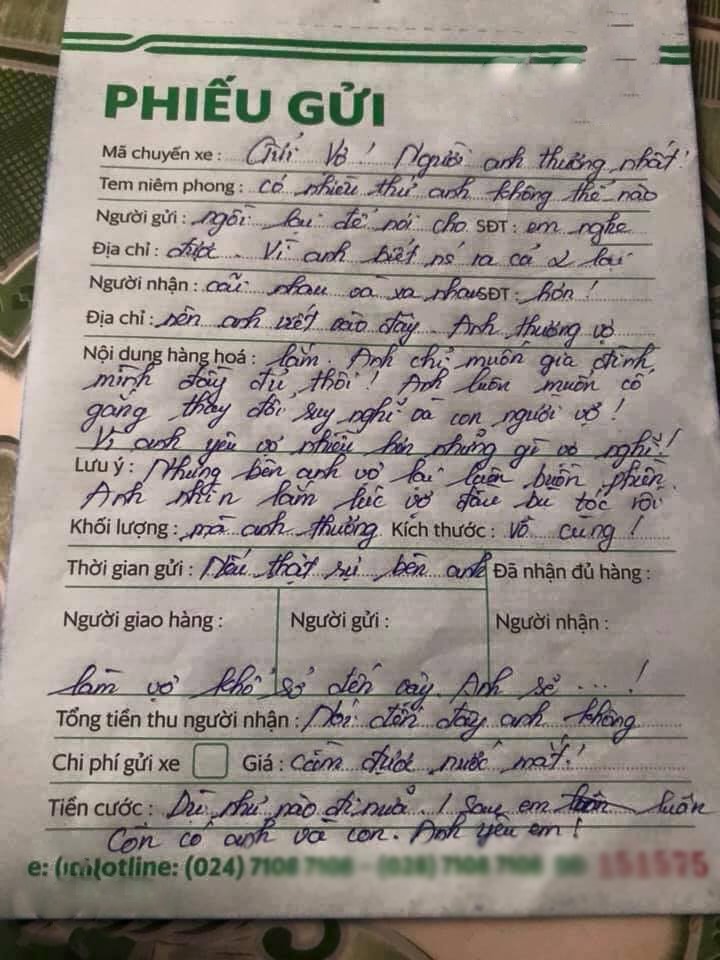 PHIẾU GỬI
Mã chuyến xe : Gửi Vợ! Người anh thương nhất!
Tem niêm phong : có nhiều thứ anh không thể nào
Người gửi : ngồi lại để nói cho SĐT : em nghe
Địa chỉ : được. Vì anh biết nó ra cả 2 lại
Người nhận : cãi nhau và xa nhau SĐT : hơn!
Địa chỉ : nên anh viết vào đây. Anh thương vợ
Nội dung hàng hoá : lắm. Anh chỉ muốn gia đình
mình đầy đủ thôi! Anh luôn muốn cố
gắng thay đổi suy nghĩ và con người vợ!
Vì anh yêu vợ nhiều hơn những gì vợ nghĩ!
Lưu ý : Nhưng bên anh vợ lại luôn buồn phiền.
Anh nhìn lắm lúc vợ đầu bù tóc rối
Khối lượng : mà anh thương Kích thước : vô cùng!
Thời gian gửi : Nếu thật sự bên anh Đã nhận đủ hàng :
Người giao hàng : Người gửi : Người nhận :
làm vợ khổ sở đến vậy. Anh sẽ ... !
Tổng tiền thu người nhận : Nói đến đây anh không
Chi phí gửi xe Giá : cầm được nước mắt!
Tiền cước : Dù như nào đi nữa! Sau em luôn
Còn có anh và con. Anh yêu em!
otline: (024) 7108 7108 - (028) 7108 7108 151575